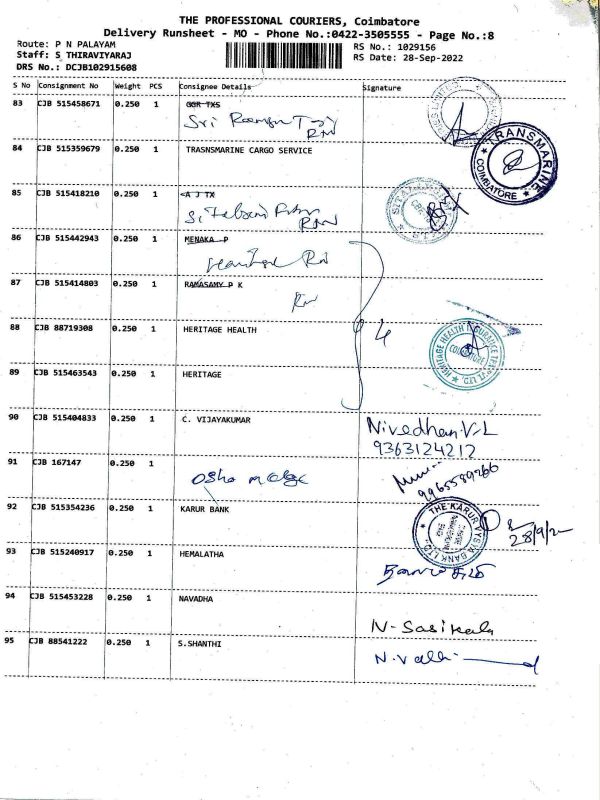 THE PROFESSIONAL COURIERS, Coimbatore
Delivery Runsheet - MO - Phone No.:0422-3505555 - Page No.:8
Route: P N PALAYAM
RS No.: 1029156
Staff: S THIRAVIYARAJ
RS Date: 28-Sep-2022
DRS No.: DCJB102915608
S No Consignment No Weight PCS Consignee Details Signature
83 CJB 515458671 0.250 1 GGR TXS
Sri
84 CJB 515359679 0.250 1 TRASNSMARINE CARGO SERVICE
TRANSMARINE
COIMBATORE
85 CJB 515418210 0.250 1 A J TX
86 CJB 515442943 0.250 1 MENAKA P
87 CJB 515414803 0.250 1 RAMASAMY P K
88 CJB 88719308 0.250 1 HERITAGE HEALTH
4
HERITAGE HEALTH INSURANCE
COIMBATORE
89 CJB 515463543 0.250 1 HERITAGE
90 CJB 515404833 0.250 1 C. VIJAYAKUMAR
Nivedhan V.L
9363124212
91 CJB 167147 0.250 1
Osho
9965589266
92 CJB 515354236 0.250 1 KARUR BANK
THE KARUR VYSYA BANK LTD.
93 CJB 515240917 0.250 1 HEMALATHA
94 CJB 515453228 0.250 1 NAVADHA
N-Sasikala
95 CJB 88541222 0.250 1 S.SHANTHI
N.Valli